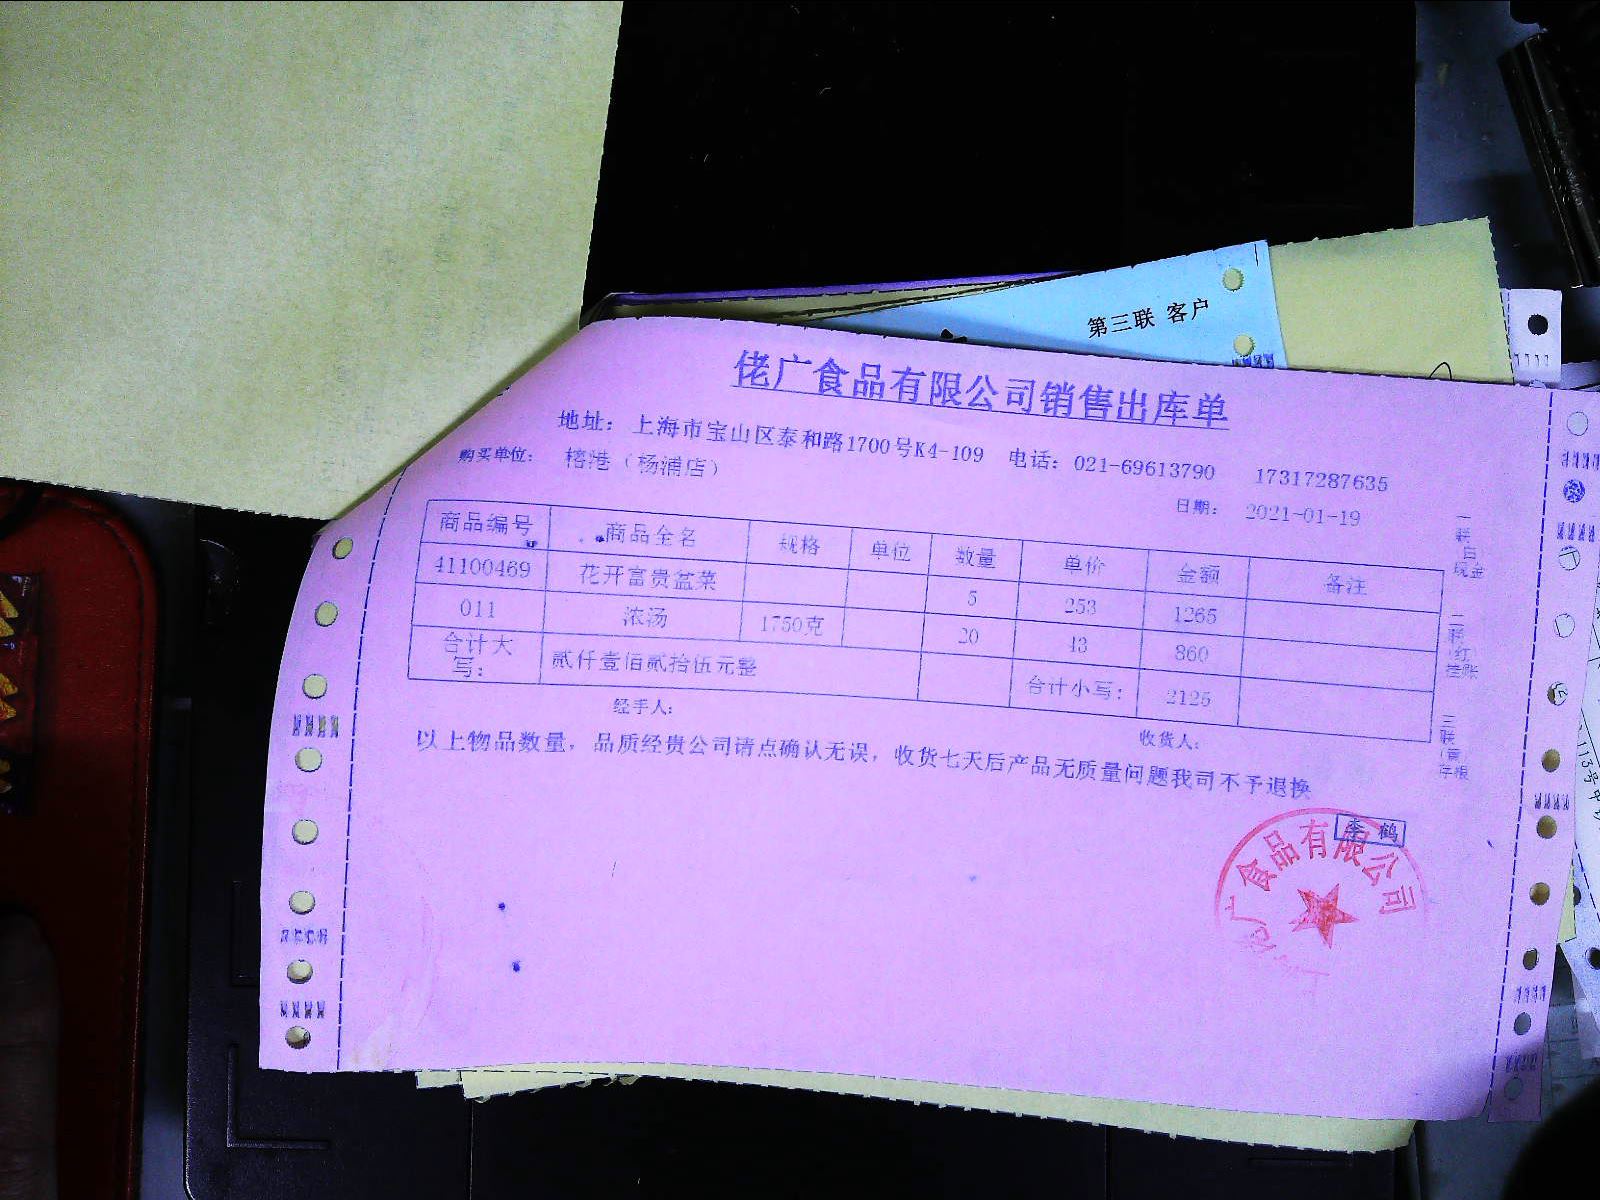 第三联 客户
佬广食品有限公司销售出库单
地址: 上海市宝山区泰和路1700号K4-109 电话: 021-69613790 17317287635
购买单位: 榕港（杨浦店）
日期: 2021-01-19
商品编号 商品全名 规格 单位 数量 单价 金额 备注
41100469 花开富贵盆菜 5 253 1265
011 浓汤 1750克 20 43 860
合计大写: 贰仟壹佰贰拾伍元整 合计小写: 2125
经手人: 收货人:
以上物品数量，品质经贵公司请点确认无误，收货七天后产品无质量问题我司不予退换
一联（白）现金
二联（红）挂账
三联（黄）存根
李鹤
广食品有限公司